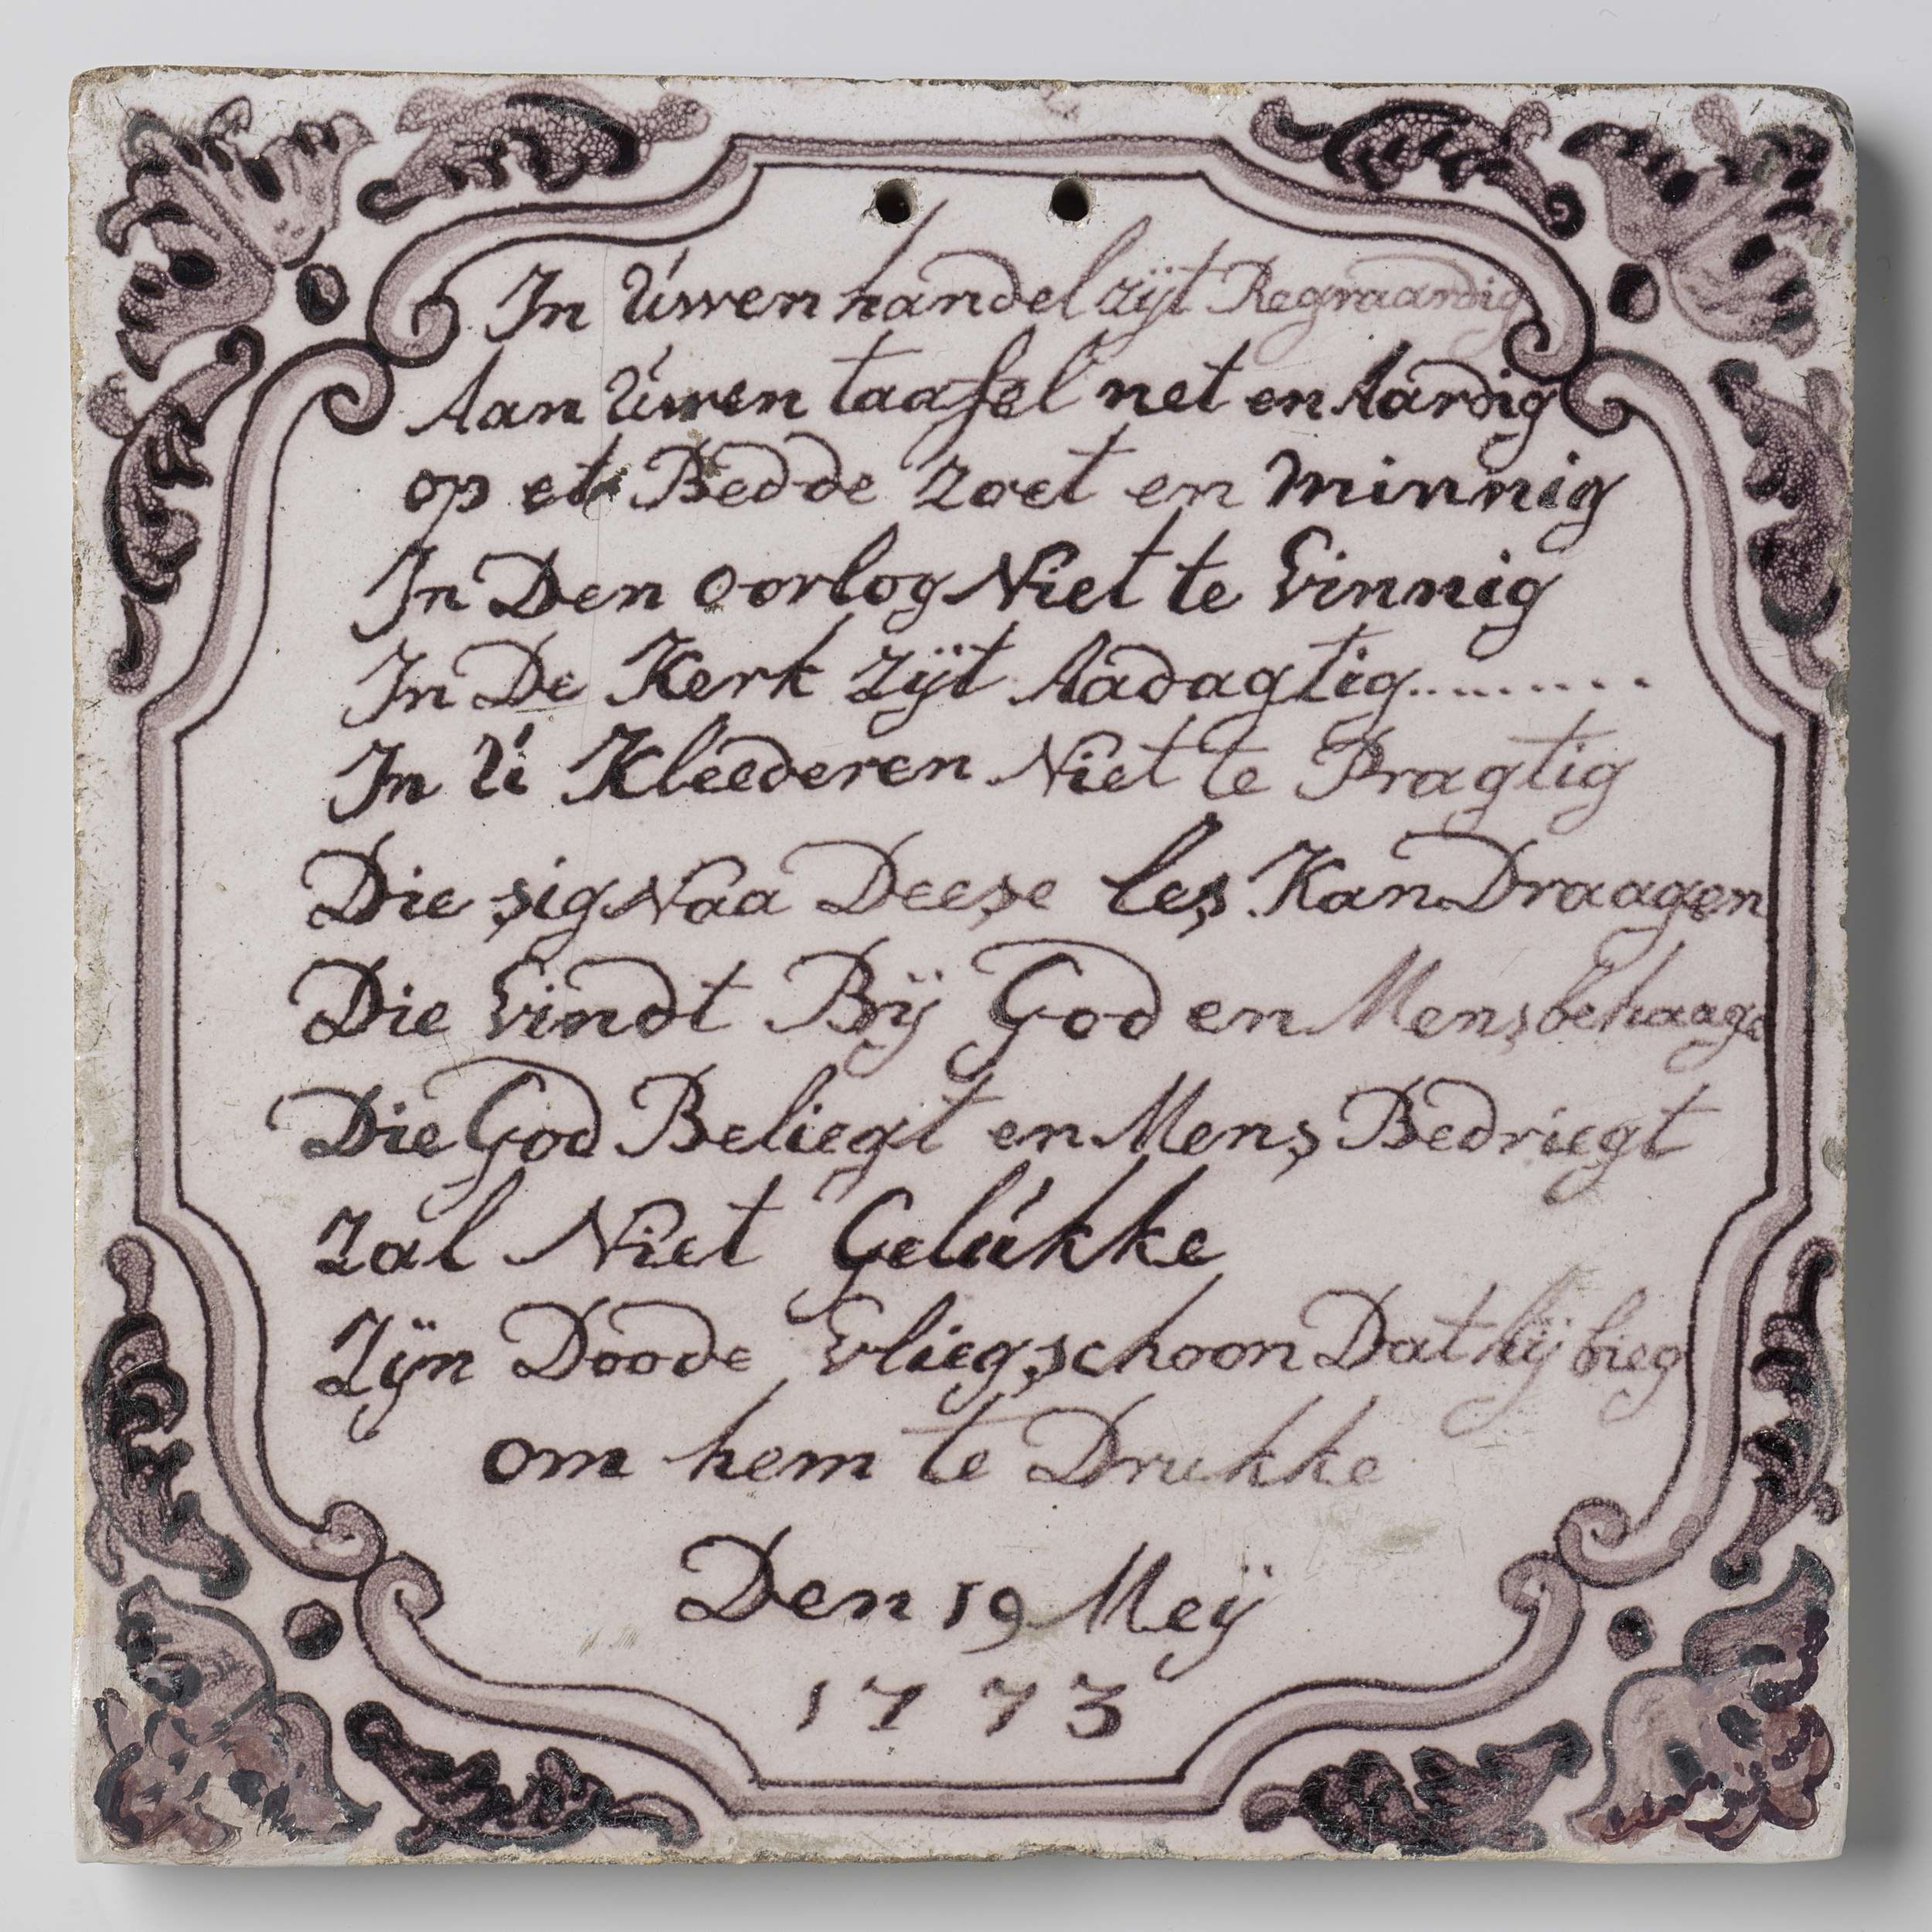 In Úwen handel zijt Regvaardig
Aan Úwen taafel net en Aardig
op et Bedde zoet en minnig
In Den oorlog Niet te Vinnig
In De Kerk zijt Aadagtig.........
In Ú Kleederen Niet te Pragtig
Die sig Naa Deese les Kan Draagen
Die Vindt Bij God en Mens behaage
Die God Beliegt en Mens Bedriegt
Zal Niet Gelúkke
Zijn Doode Vliegschoon Dat hij bieg
om hem te Drukke
Den 19 Meij
1773